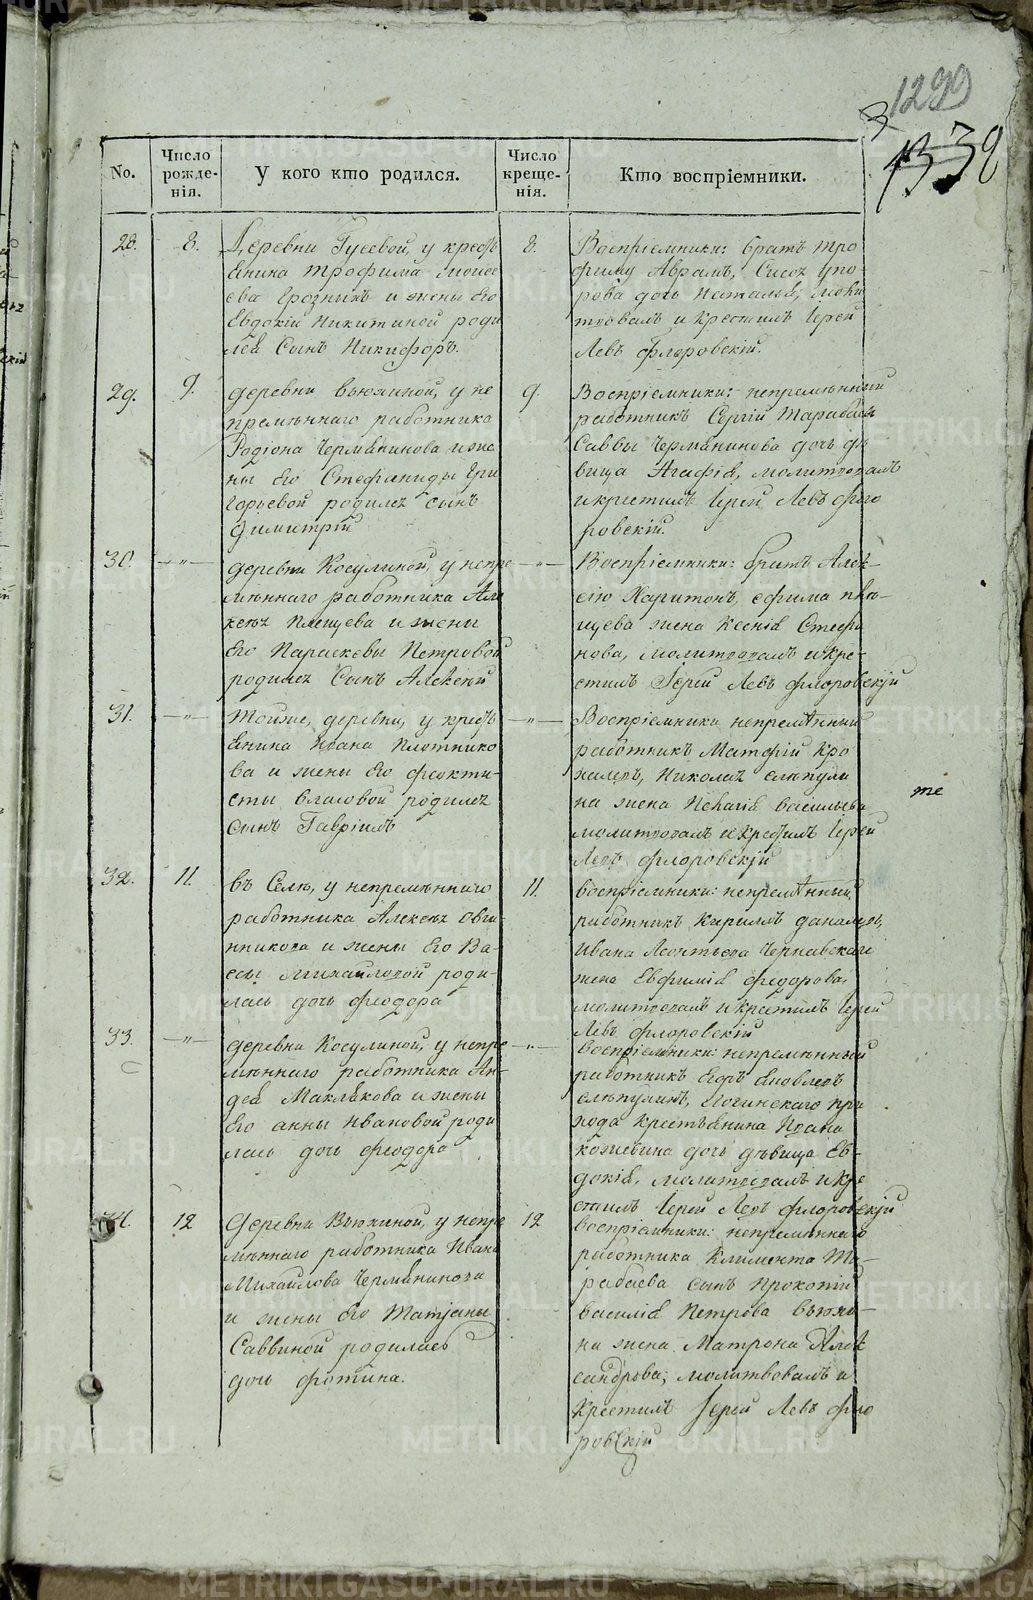 1299
1338
No.
Число рожде-нія.
У кого кто родился.
Число креще-нія.
Кто воспріемники.
28.
8.
Деревни Гусевой, у кресть
янина Трофима Моисе
ева и жены его
Евдокіи Никитиной роди
лся сынъ Никифоръ.
8.
Воспріемники: братъ Тро
фиму Аврамъ,
дочь Наталья, моли
твовалъ и крестилъ Іерей
Левъ Флоровскій.
29.
9.
деревни Вьюхиной, у не
премѣннаго работника
Родіона Чермянинова и же
ны его Стефаниды Гри
горьевой родился сынъ
Димитрій
9.
Воспріемники: непремѣнный
работникъ Сергій Тарабаевъ
Саввы Чермянинова дочь дѣ
вица Агафія, молитвовалъ
и крестилъ Іерей Левъ Фло
ровскій.
30.
—"—
деревни Косулиной, у непре
мѣннаго работника Але
ксея Плещева и жены
его Параскевы Петровой
родился сынъ Алексѣй
—"—
Воспріемники: братъ Алек-
сію Харитонъ, Ефима Пле-
щева жена Ксенія Стефа
нова, молитвовалъ и кре-
стилъ Іерей Левъ Флоровскій
31.
—"—
Тойже, деревни, у кресть
янина Ивана Плотнико
ва и жены его Феокти-
сты Власовой родился
сынъ Гавріилъ
—"—
Воспріемники непремѣнный
работникъ Матфій Кро
халевъ, Николая Слѣпухи
на жена Пелагія Васильева
молитвовалъ и крестилъ Іерей
Левъ Флоровскій
те
32.
11.
въ Селѣ, у непремѣннаго
работника Алексея Овчи-
нникова и жены его Ва-
сы Михайловой роди-
лась дочь Феодора
11.
воспріемники: непремѣнный
работникъ Кириллъ
Ивана Леонтьева Чернавскаго
жена Евфимія Федорова,
молитвовалъ и крестилъ Іерей
Левъ Флоровскій
33.
—"—
деревни Косулиной, у непре
мѣннаго работника Ан-
дрея Маклакова и жены
его Анны Ивановой роди
лась дочь Феодора
—"—
воспріемники: непремѣнный
работникъ Егоръ Яковлевъ
Слѣпухинъ, Логинскаго при
хода крестьянина Ивана
Кожевина дочь дѣвица Ев-
докія, молитвовалъ и кре
стилъ Іерей Левъ Флоровскій
34.
12
Деревни Вьюхиной, у непре
мѣннаго работника Ивана
Михайлова Чермянинова
и жены его Татіаны
Саввиной родилась
дочь Фотина.
12
воспріемники: непремѣннаго
работника Климента Та-
рабаева сынъ Прокопій
Василія Петрова Вьюхи-
на жена Матрона Алек
сандрова, молитвовалъ и
крестилъ Іерей Левъ Фло
ровскій
METRIKI.GASO-URAL.RU